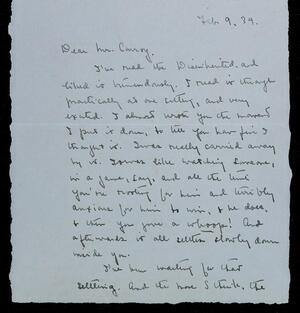 Feb 9. 34.
Dear Mr. Conroy,
I've read the Disinherited, and
liked it tremendously. I read it through
practically at one sitting, and very
excited. I almost wrote you the moment
I put it down, to tell you how fine I
thought it. I was really carried away
by it. It was like watching someone,
in a game, say, and all the time
you're rooting for him and terribly
anxious for him to win, & he does,
& then you give a whoops! And
afterwards it all settles slowly down
inside you.
I've been waiting for that
settling. And the more I think, the